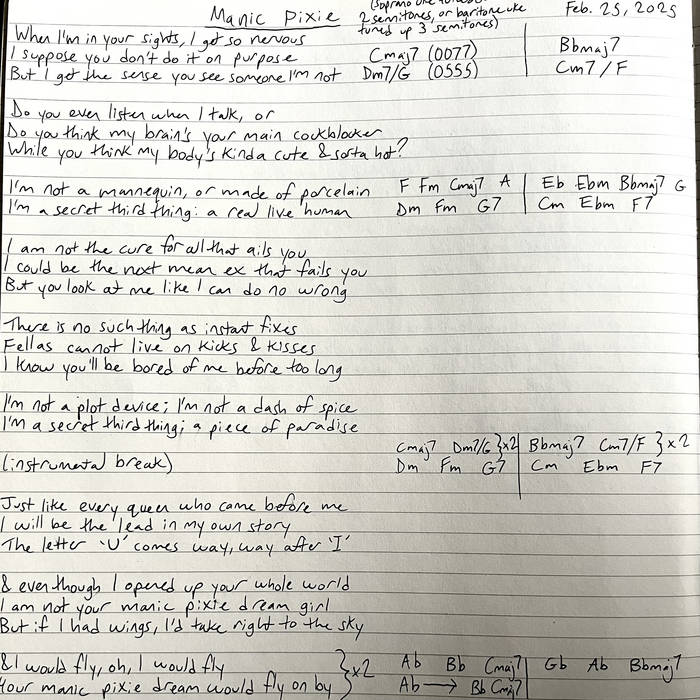 Manic Pixie
(soprano uke
2 semitones, or baritone uke
tuned up 3 semitones)
Feb. 25, 2025
When I'm in your sights, I get so nervous
I suppose you don't do it on purpose Cmaj7 (0077) | Bbmaj7
But I get the sense you see someone I'm not Dm7/G (0555) | Cm7/F
Do you even listen when I talk, or
Do you think my brain's your main cockblocker
While you think my body's kinda cute & sorta hot?
I'm not a mannequin, or made of porcelain F Fm Cmaj7 A | Eb Ebm Bbmaj7 G
I'm a secret third thing: a real live human Dm Fm G7 | Cm Ebm F7
I am not the cure for all that ails you
I could be the next mean ex that fails you
But you look at me like I can do no wrong
There is no such thing as instant fixes
Fellas cannot live on kicks & kisses
I know you'll be bored of me before too long
I'm not a plot device; I'm not a dash of spice
I'm a secret third thing; a piece of paradise
Cmaj7 Dm7/G }x2 | Bbmaj7 Cm7/F }x2
(instrumental break) Dm Fm G7 | Cm Ebm F7
Just like every queen who came before me
I will be the lead in my own story
The letter 'U' comes way, way after 'I'
& even though I opened up your whole world
I am not your manic pixie dream girl
But if I had wings, I'd take right to the sky
& I would fly, oh, I would fly }x2 Ab Bb Cmaj7 | Gb Ab Bbmaj7
Your manic pixie dream would fly on by Ab → Bb Cmaj7